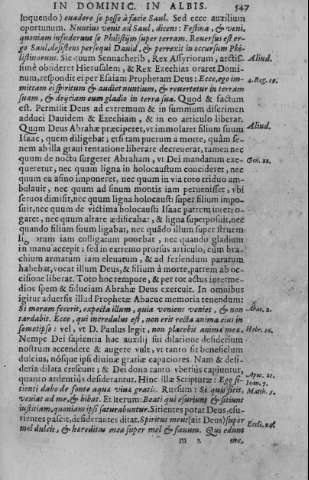 IN DOMINIC. IN ALBIS. 547
loquendo) euadere se posse à facie Saul. Sed ecce auxilium
oportunum. Nuntius venit ad Saul, dicens: Festina, & veni,
quoniam infuderunt se Philistijm super terram. Reuersus est er-
go Saul, desistens persequi Dauid, & perrexit in occursum Phi-
listinorum. Sic quum Sennacherib, Rex Assyriorum, arctiss. Aliud.
imè obsideret Hierusalem, & Rex Ezechias oraret Domi-
num, respondit ei per Esaiam Prophetam Deus: Ecce, ego im- 4. Reg. 19.
mittam ei spiritum & audiet nuntium, & reuertetur in terram
suam, & deijciam eum gladio in terra sua. Quod & factum
est. Permisit Deus ad extremum & in summum discrimen
adduci Dauidem & Ezechiam, & in eo articulo liberat.
Quum Deus Abrahæ præciperet, vt immolaret filium suum Aliud.
Isaac, quem diligebat; etsi tam parum à morte, quàm se-
nem ab illa graui tentatione liberare decreuerat, tamen nec
quum de noctu surgeret Abraham, vt Dei mandatum exe- Gen. 22.
queretur, nec quum ligna in holocaustum concideret, nec
quum ea asino imponeret, nec quum in via toto triduo am-
bulauit, nec quum ad sinum montis iam peruenisset, vbi
seruos dimisit, nec quum ligna holocausti super filium impo-
suit, nec quum de victima holocausti Isaac patrem interro-
garet, nec quum altare ædificabat, & ligna superposuit, nec
quando filium suum ligabat, nec quãdo illum super struem
lignorum iam colligatum ponebat, nec quando gladium
in manu accepit: sed in extremo prorsus articulo, cùm bra-
chium armatum iam eleuatum, & ad feriendum paratum
habebat, vocat illum Deus, & filium à morte, patrem ab oc-
cisione liberat. Toto hoc tempore, & per tot actus interme-
dios spem & fiduciam Abrahæ Deus exercuit. In omnibus
igitur aduersis illud Prophetæ Abacuc memoria tenendum:
Si moram fecerit, expecta illum, quia veniens veniet, & non Abac. 2.
tardabit. Ecce, qui incredulus est, non erit recta anima eius in
semetipso: vel, vt D. Paulus legit, non placebit animæ meæ. Hebr. 10.
Nempe Dei sapientia hac auxilij sui dilatione desiderium
nostrum accendere & augere vult, vt tanto sit beneficium
dulcius, nósque ipsi diuinæ gratiæ capaciores. Nam & desi-
deria dilata crescunt; & Dei dona tanto vberius capiuntur,
quanto ardentiùs desiderantur. Hinc illæ Scripturæ: Ego si- Apoc. 21.
tienti dabo de fonte aquæ viuæ gratis. Rursum: Si quis sitit, Ioan. 7.
veniat ad me, & bibat. Et iterum: Beati qui esuriunt & sitiunt Matth. 5.
iustitiam, quoniam ipsi saturabuntur. Sitientes potat Deus, esu-
rientes pascit, desiderantes ditat. Spiritus meus (ait Deus) super Eccli. 24.
mel dulcis, & hereditas mea super mel & fauum. Qui edunt
m 2 me,